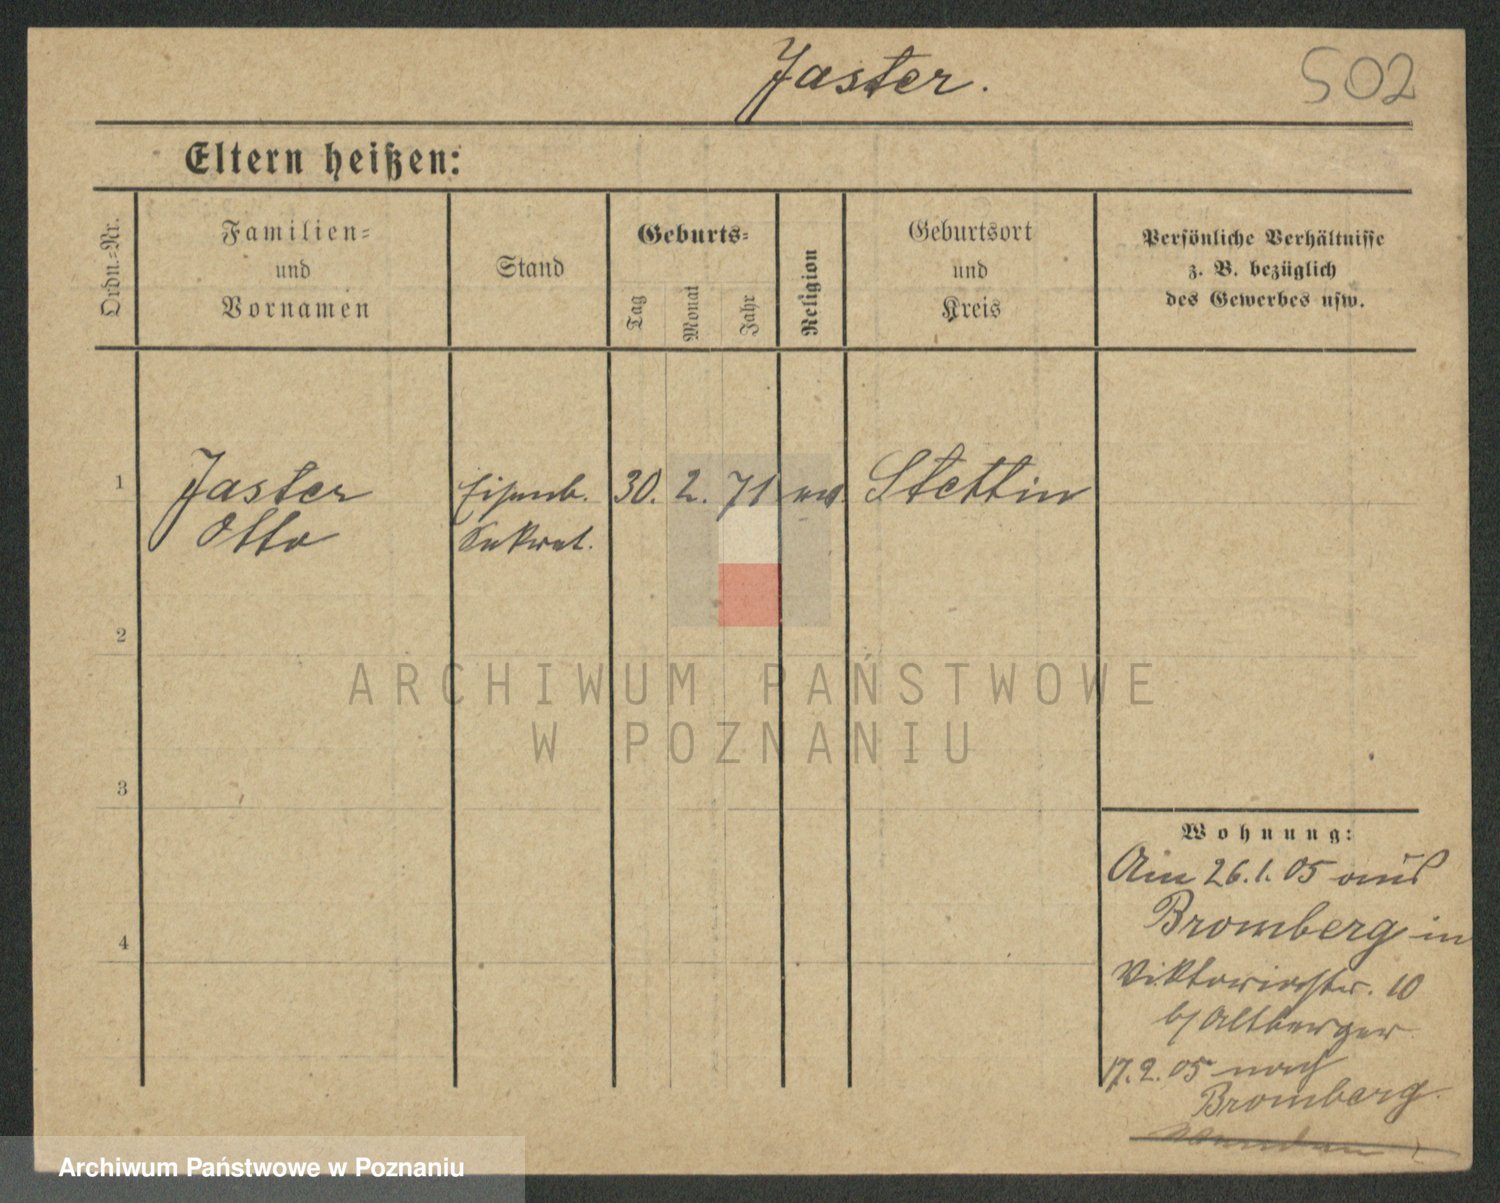 Jaster.
502
Eltern heißen:
Ordn.-Nr.
Familien-
und
Vornamen
Stand
Geburts-
Tag
Monat
Jahr
Religion
Geburtsort
und
Kreis
Persönliche Verhältnisse
z. B. bezüglich
des Gewerbes usw.
1
Jaster
Otto
Eisenb.
Sekret.
30. 2. 71
ev.
Stettin
2
3
4
Wohnung:
Am 26.1.05 aus
Bromberg in
Viktoriastr. 10
b/ Altberger
17.2.05 nach
Bromberg.
ARCHIWUM PAŃSTWOWE
W POZNANIU
Archiwum Państwowe w Poznaniu